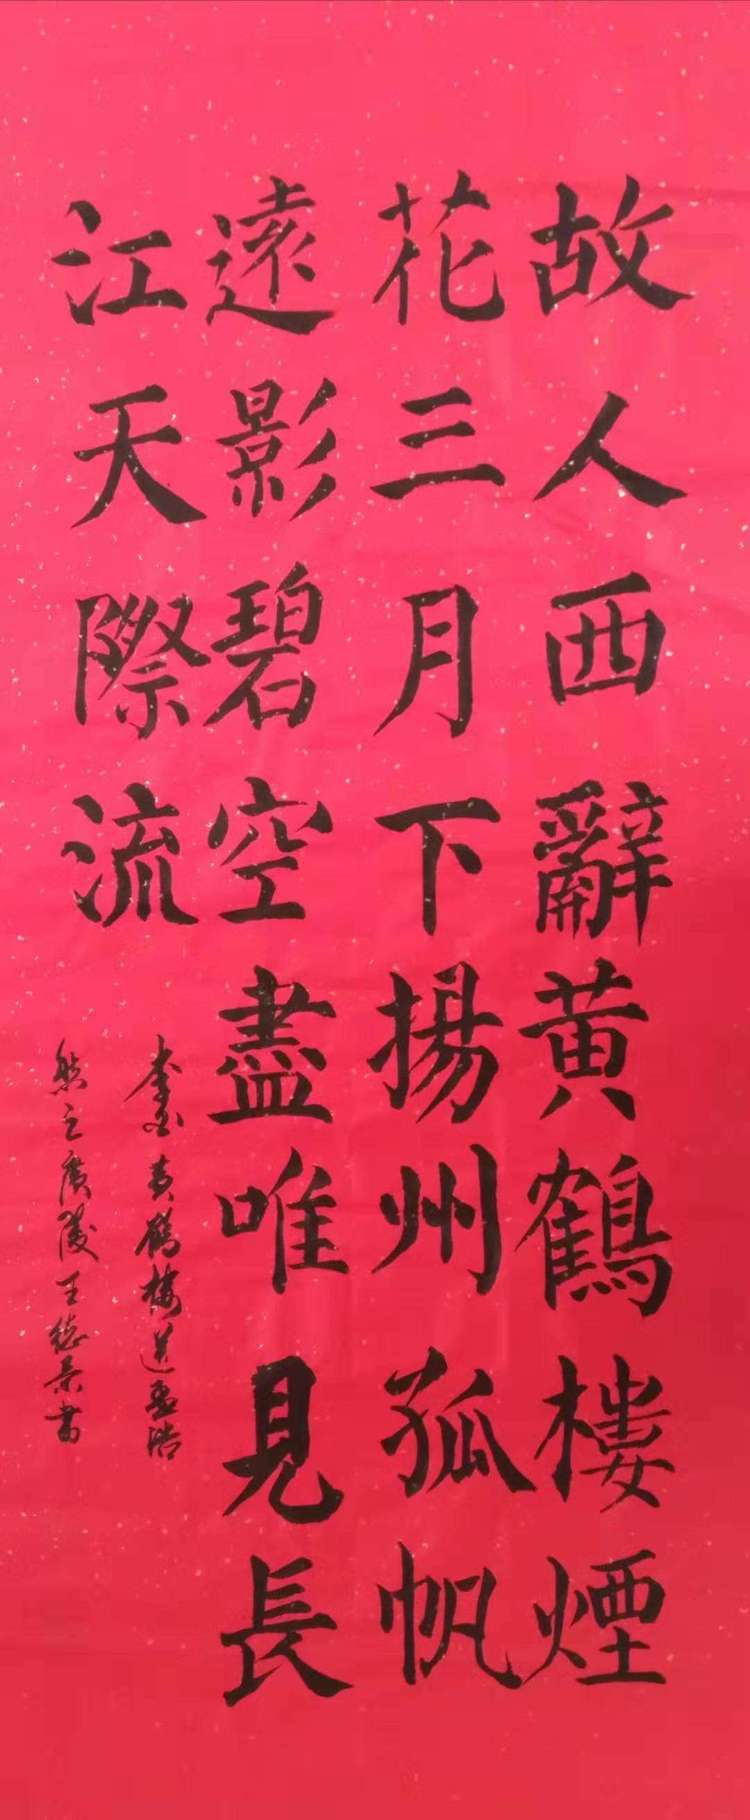 故人西辭黄鶴樓煙
花三月下揚州孤帆
遠影碧空盡唯見長
江天際流
李白黄鶴樓送孟浩
然之廣陵王德景書